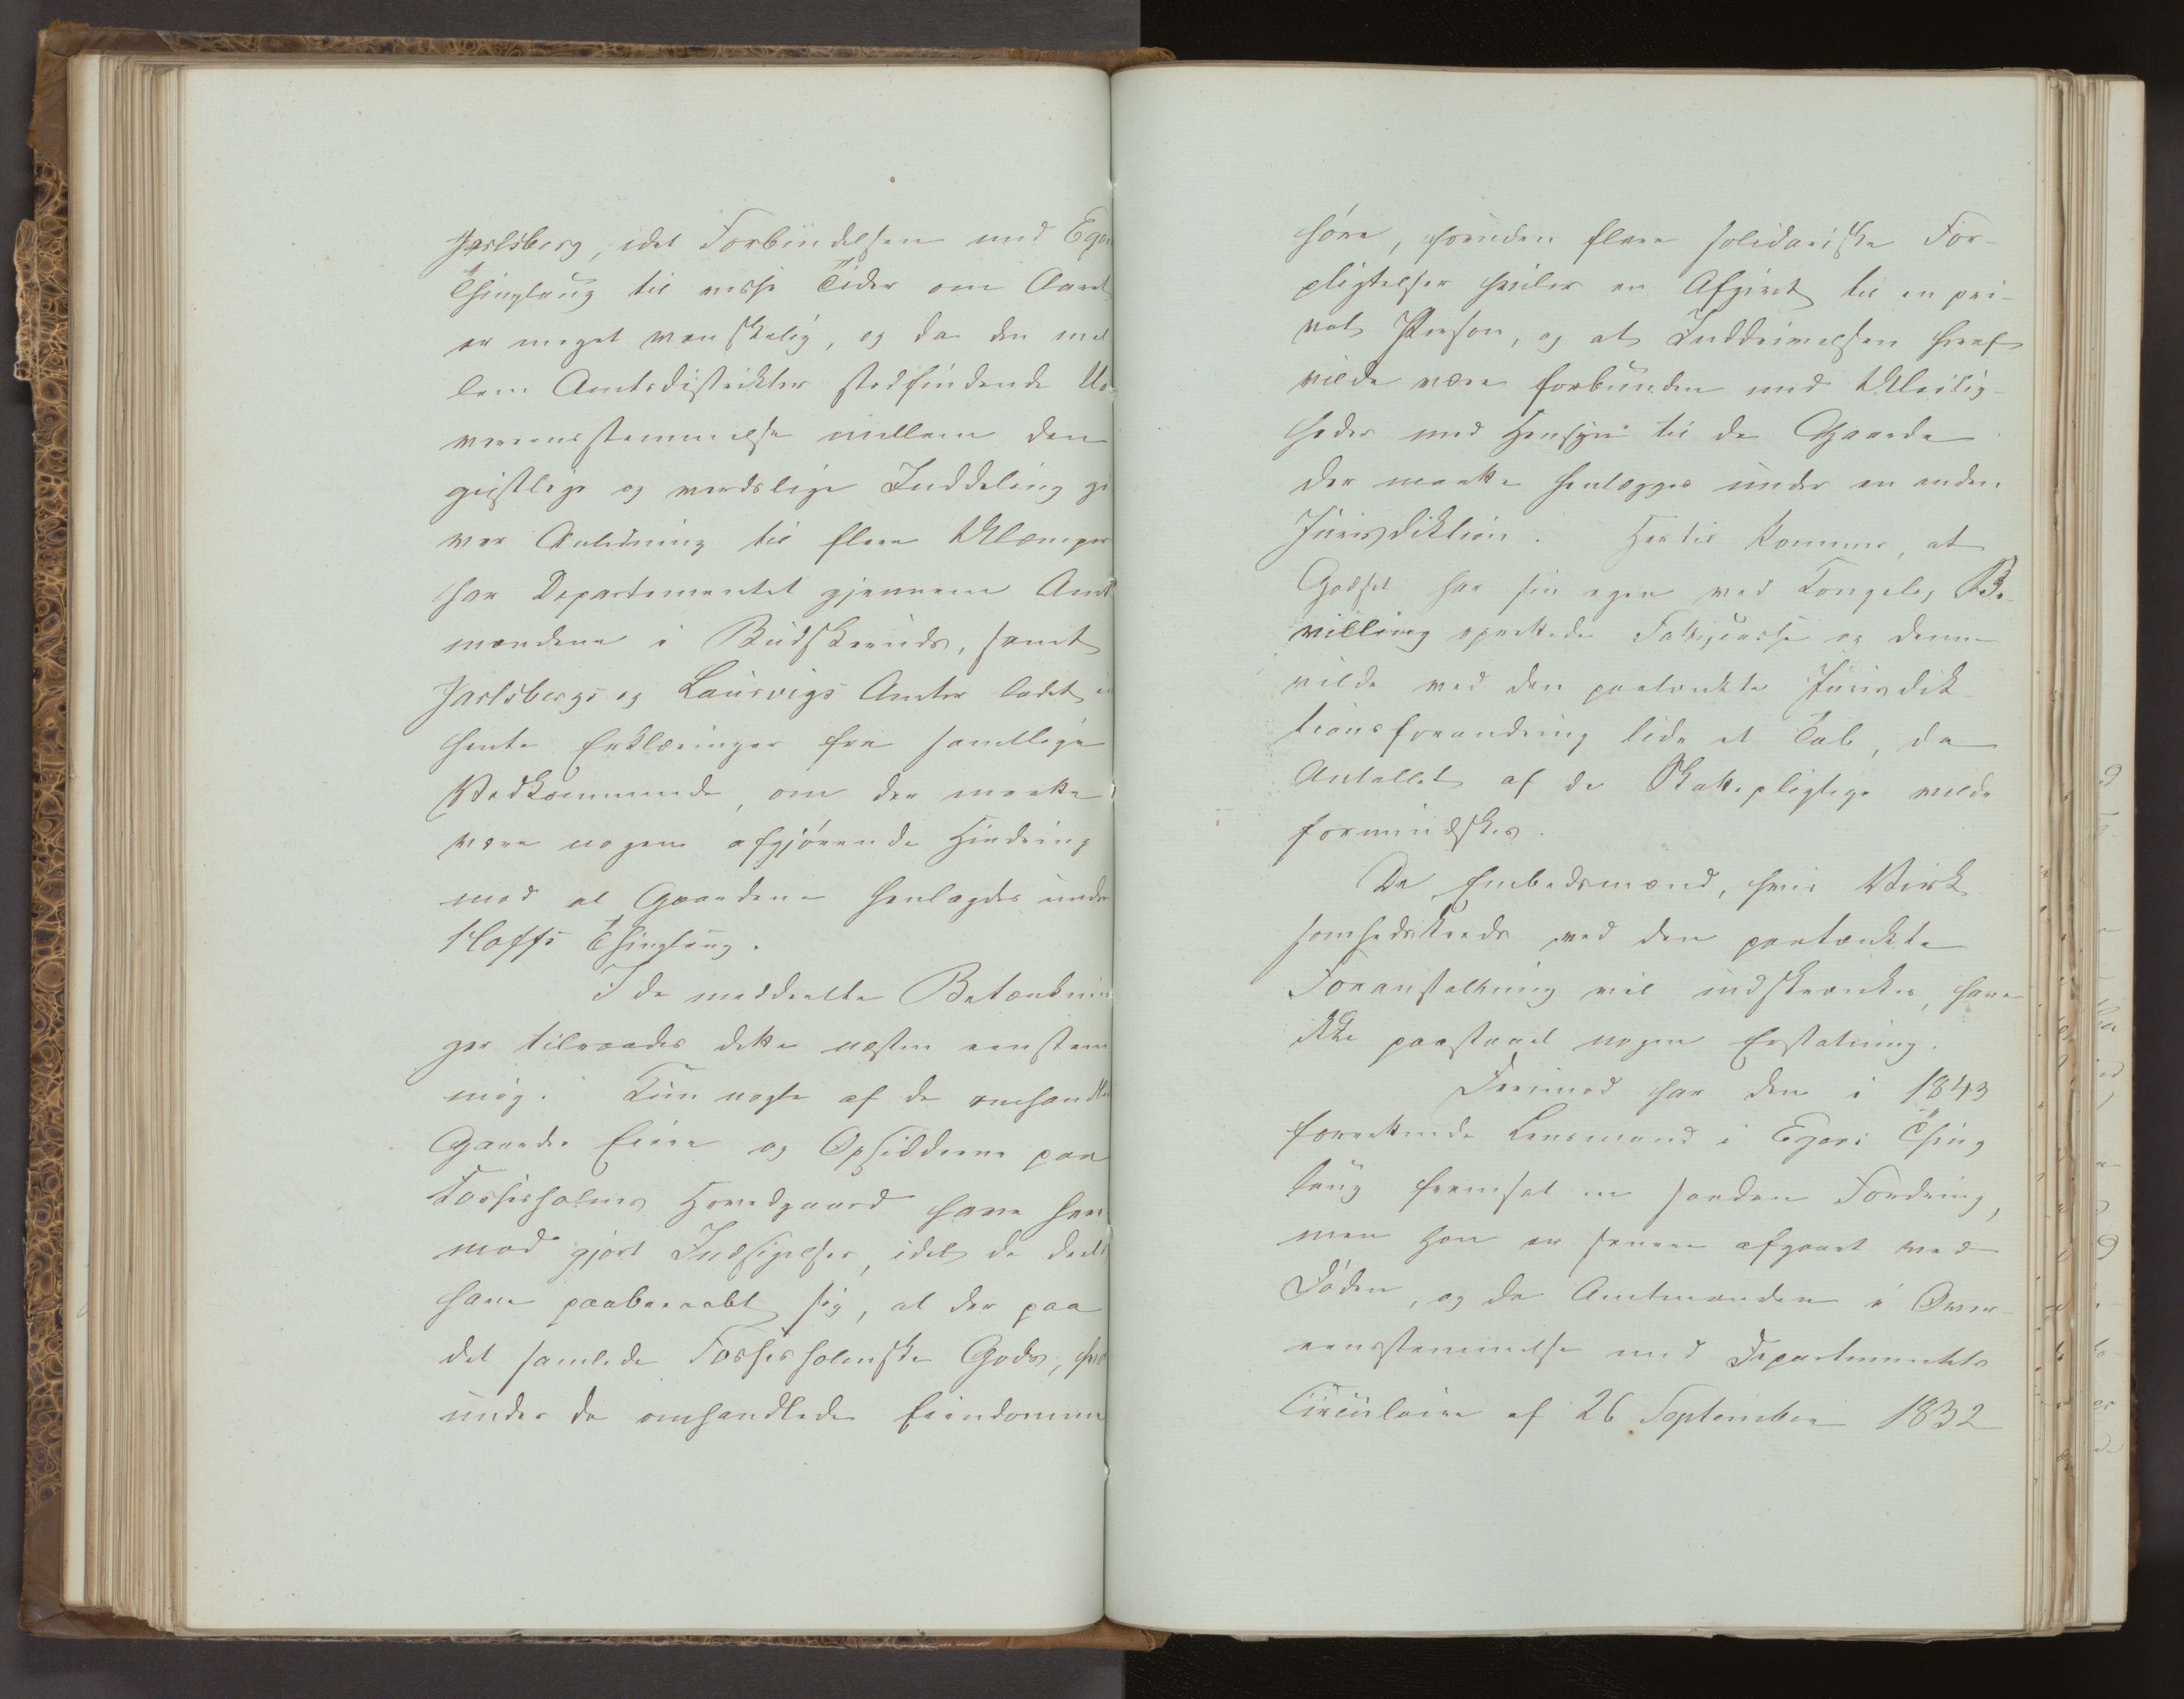 Jarlsberg, idet Forbindelsen med Egers
Thinglaug til visse Tider om Aaret
er meget vanskelig, og da den mel
lem Amtsdistrikter stedfindende Uo-
vereensstemmelse mellem den
geistlige og verdslige Inddeling gi
ver Anledning til flere Ulæmper
har Departementet gjennem Amt
mændene i Budskeruds, samt
Jarlsbergs og Laurvigs Amter ladet ind
hente Erklæringer fra samtlige
Vedkommende, om der maatte
være nogen afgjørende Hindring
mod at Gaardene henlagdes under
Hoffs Thinglaug.
I de meddeelte Betænknin
ger tilraades dette næsten eenstem
mig. Kun nogle af de omhandlede
Gaardes Eiere og Opsidderne paa
Fossesholms Hovedgaard have her
mod gjort Indsigelser, idet de deels
have paaberaabt sig, at der paa
det samlede Fossesholmske Gods, hvor
under de omhandlede Eiendomme
høre, foruden flere solidariske For-
pligtelser hviler en Afgivt til en pri-
vat Person, og at Inddrivelsen heraf
vilde være forbunden med Uleilig-
heder med Hensyn til de Gaarde
der maatte henlægges under en anden
Jurisdiktion. Hertil kommer, at
Godset har sin egen ved Kongelig Be-
villing oprettede Fattigcasse og denne
vilde ved den paatænkte Jurisdik
tionsforandring lide et Tab, da
Antallet af de Skattepligtige vilde
formindskes.
De Embedsmænd, hvis Virk
somhedskreds ved den paatænkte
Foranstaltning vil indskrænkes, have
ikke paastaaet nogen Erstatning.
Derimod har den i 1843
fungerende Lensmand i Egers Thing
laug fremsat en saadan Fordring,
men han er senere afgaaet ved
Døden, og da Amtmanden i Over-
eensstemmelse med Departementets
Circulaire af 26 September 1832